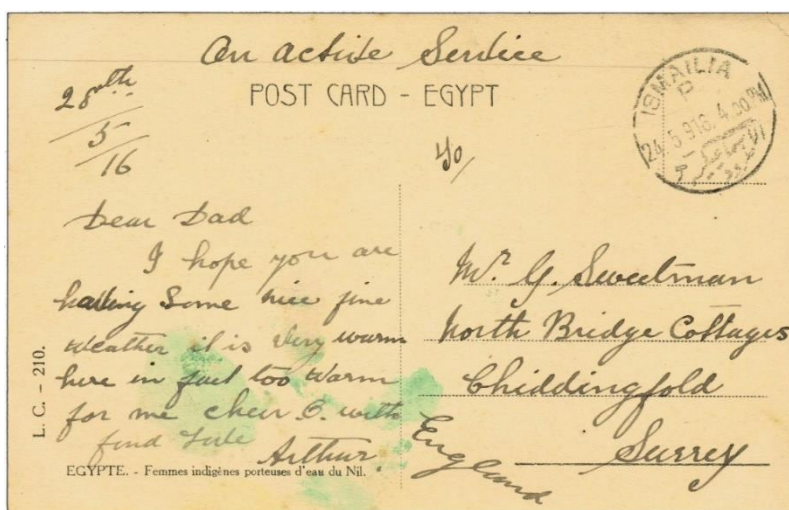 On active Service
POST CARD - EGYPT
5
16
To/
ISMAILIA
24. 5. 916. 4.00 PM
Dear Dad
I hope you are
having Some nice fine
weather it is very warm
here in fact too warm
for me cheer O. with
fond Love
Arthur
Mr. G. Sweetman
North Bridge Cottages
Chiddingfold
Surrey
England
L. C. - 210.
EGYPTE. - Femmes indigènes porteuses d'eau du Nil.